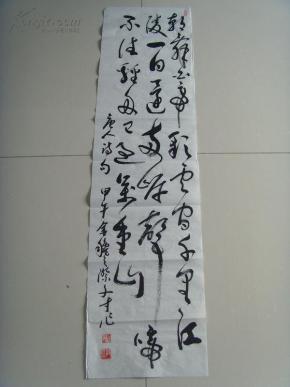 朝辭白帝彩雲間千里江
陵一日還兩岸猿聲啼
不住輕舟已過萬重山
唐人詩句 甲午金